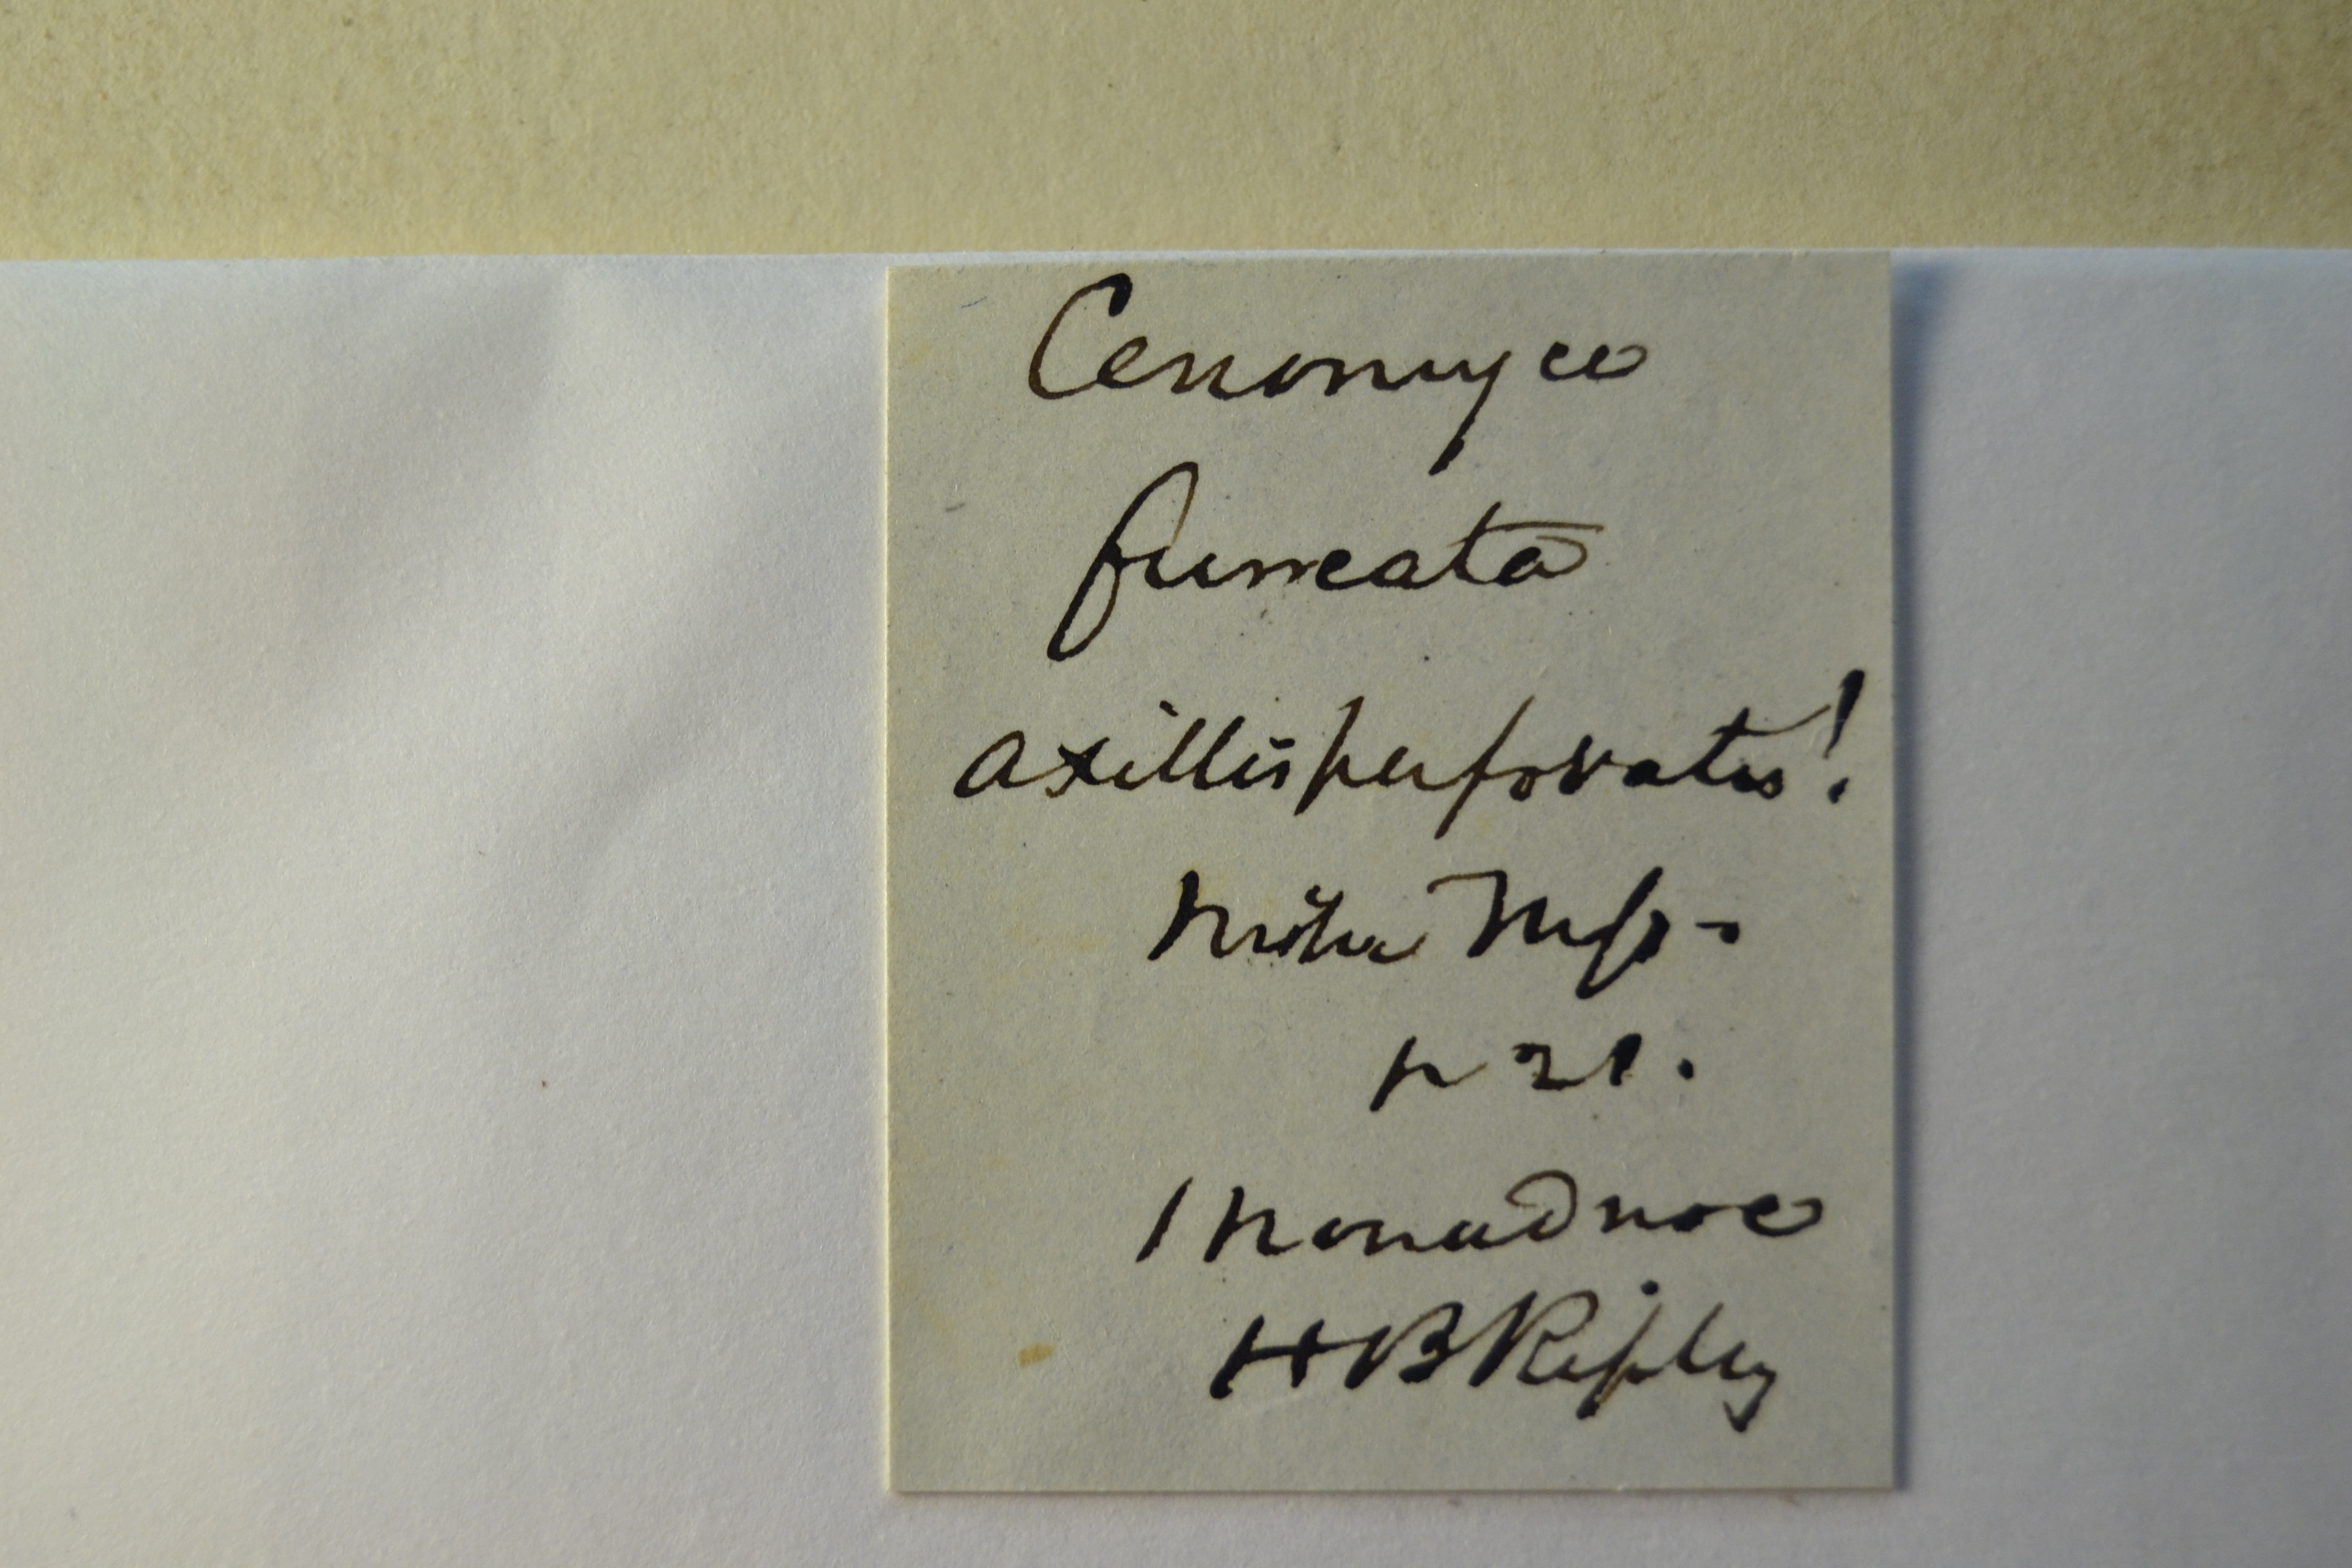 Cenomyce
furcata
axillis perforatis!
mihi Mss -
p 21.
Monadnoc
H B Ripley